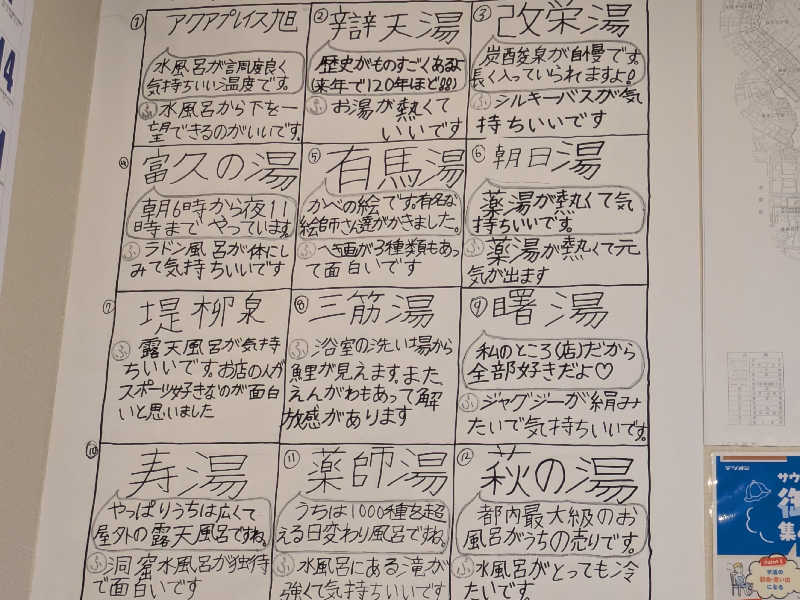 ① アクアプレイス旭
水風呂が調度良く
気持ちいい温度です。
㋫水風呂から下を一
望できるのがいいです。
② 辯天湯
歴史がものすごくあるよ
(来年で120年ほど!!)
㋫お湯が熱くて
いいです
③ 改栄湯
炭酸泉が自慢です。
長く入っていられますよ!
㋫シルキーバスが気
持ちいいです
④ 富久の湯
朝6時から夜11
時まで、やっています。
㋫ラドン風呂が体にし
みて気持ちいいです
⑤ 有馬湯
かべの絵です。有名な
絵師さん達がかきました。
㋫ペき画が3種類もあっ
て面白いです
⑥ 朝日湯
薬湯が熱くて気
持ちいいです。
㋫薬湯が熱くて元
気が出ます
⑦ 堤柳泉
㋫露天風呂が気持
ちいいです。お店の人が
スポーツ好きなのが面白
いと思いました
⑧ 三筋湯
㋫浴室の洗い場から
鯉が見えます。また
えんがわもあって解
放感があります
⑨ 曙湯
私のところ(店)だから
全部好きだよ♡
㋫ジャグジーが絹み
たいで気持ちいいです。
⑩ 寿湯
やっぱりうちは広くて
屋外の露天風呂ですね。
㋫洞窟水風呂が独特
で面白いです
⑪ 薬師湯
うちは1000種を超
える日変わり風呂ですね。
㋫水風呂にある滝が
強くて気持ちいいです
⑫ 萩の湯
都内最大級のお
風呂がうちの売りです。
㋫水風呂がとっても冷
たいです。
サウ
御
集